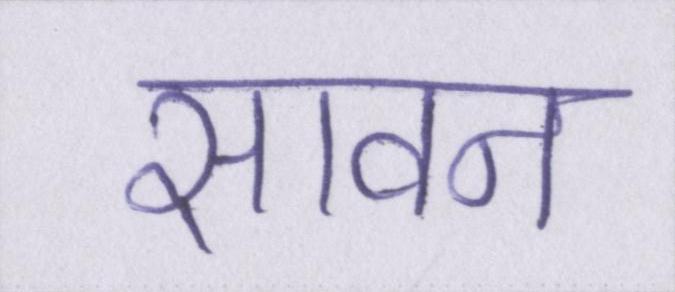 सावन